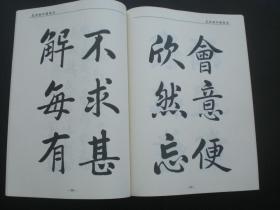 不求甚
解每有
會意便
欣然忘